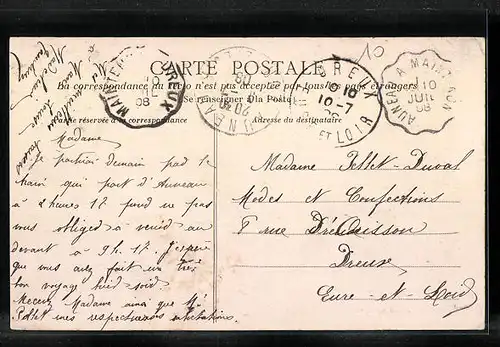 10
CARTE POSTALE
La correspondance au recto n'est pas acceptée par tous les pays étrangers
Se renseigner à la Poste
Partie réservée à la correspondance
Adresse du destinataire
DREUX
08
DREUX
10-7
ET LOIR
AUNEAU A MAINTENON
10
JUIL
08
Madame
Je partirai demain pad le
train qui part d'Auneau
à 2 heures 17 pour ne pas
vous obliger à venir au
devant à 9h.17 J'espère
que vous avez fait un très
bon voyage hier soir
Recevez Madame ainsi que Mr
Pellet mes respectueuses salutations.
Madame Pellet-Duval
Modes et Confections
8 rue
Dreux
Eure-et-Loir